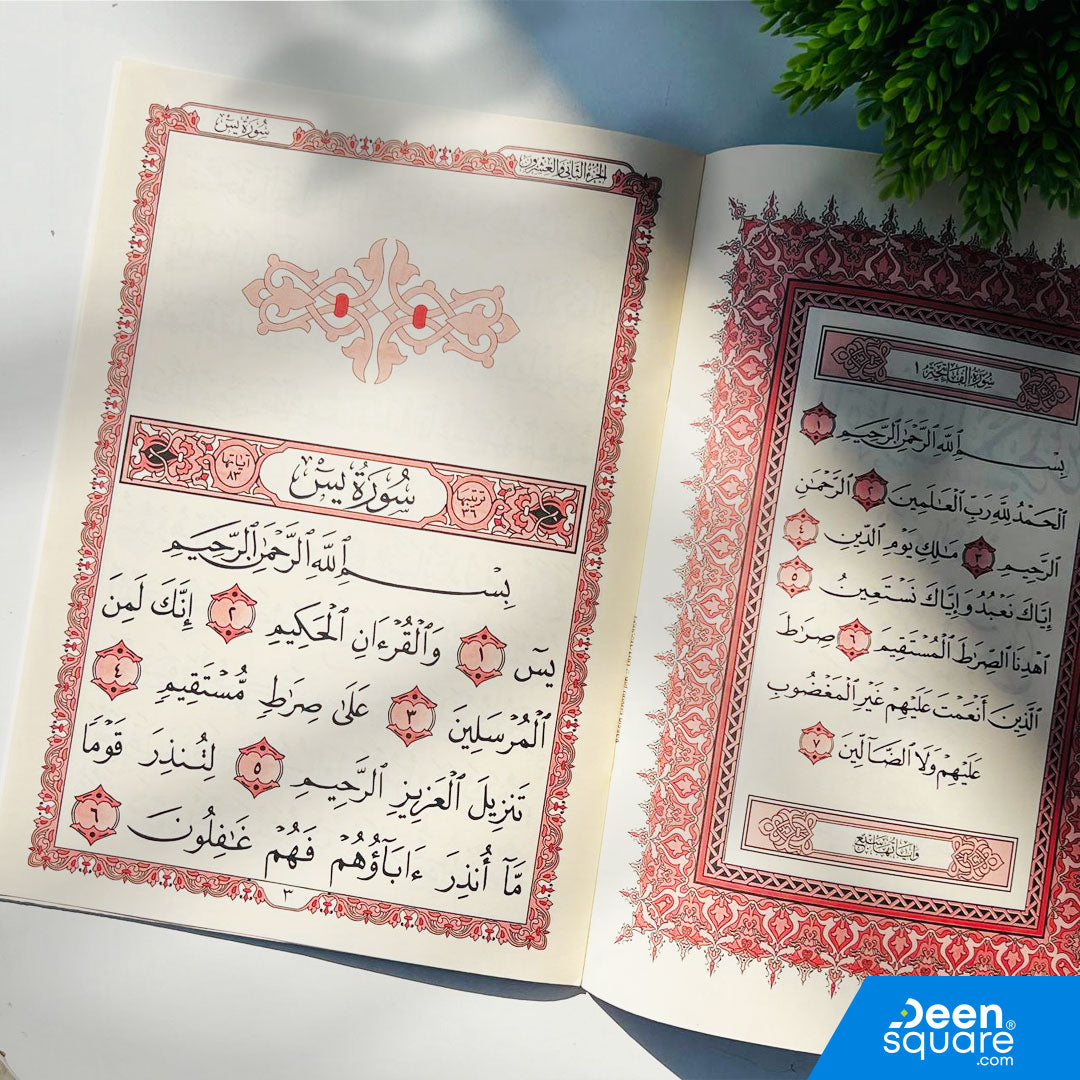 سُورَةُ الفَاتِحَةِ ١
بِسْمِ ٱللَّهِ ٱلرَّحْمَٰنِ ٱلرَّحِيمِ ١
ٱلْحَمْدُ لِلَّهِ رَبِّ ٱلْعَٰلَمِينَ ٢ ٱلرَّحْمَٰنِ
ٱلرَّحِيمِ ٣ مَٰلِكِ يَوْمِ ٱلدِّينِ ٤
إِيَّاكَ نَعْبُدُ وَإِيَّاكَ نَسْتَعِينُ ٥
ٱهْدِنَا ٱلصِّرَٰطَ ٱلْمُسْتَقِيمَ ٦ صِرَٰطَ
ٱلَّذِينَ أَنْعَمْتَ عَلَيْهِمْ غَيْرِ ٱلْمَغْضُوبِ
عَلَيْهِمْ وَلَا ٱلضَّآلِّينَ ٧
وَآيَاتُهَا سَبْعٌ
الجُزْءُ الثَّانِي وَالعِشْرُونَ
سُورَةُ يسٓ
ترتيبها ٣٦
سُورَةُ يسٓ
آياتها ٨٣
بِسْمِ ٱللَّهِ ٱلرَّحْمَٰنِ ٱلرَّحِيمِ
يسٓ ١ وَٱلْقُرْءَانِ ٱلْحَكِيمِ ٢ إِنَّكَ لَمِنَ
ٱلْمُرْسَلِينَ ٣ عَلَىٰ صِرَٰطٍ مُّسْتَقِيمٍ ٤
تَنزِيلَ ٱلْعَزِيزِ ٱلرَّحِيمِ ٥ لِتُنذِرَ قَوْمًا
مَّآ أُنذِرَ ءَابَآؤُهُمْ فَهُمْ غَٰفِلُونَ ٦
٣
Deen
square®
.com